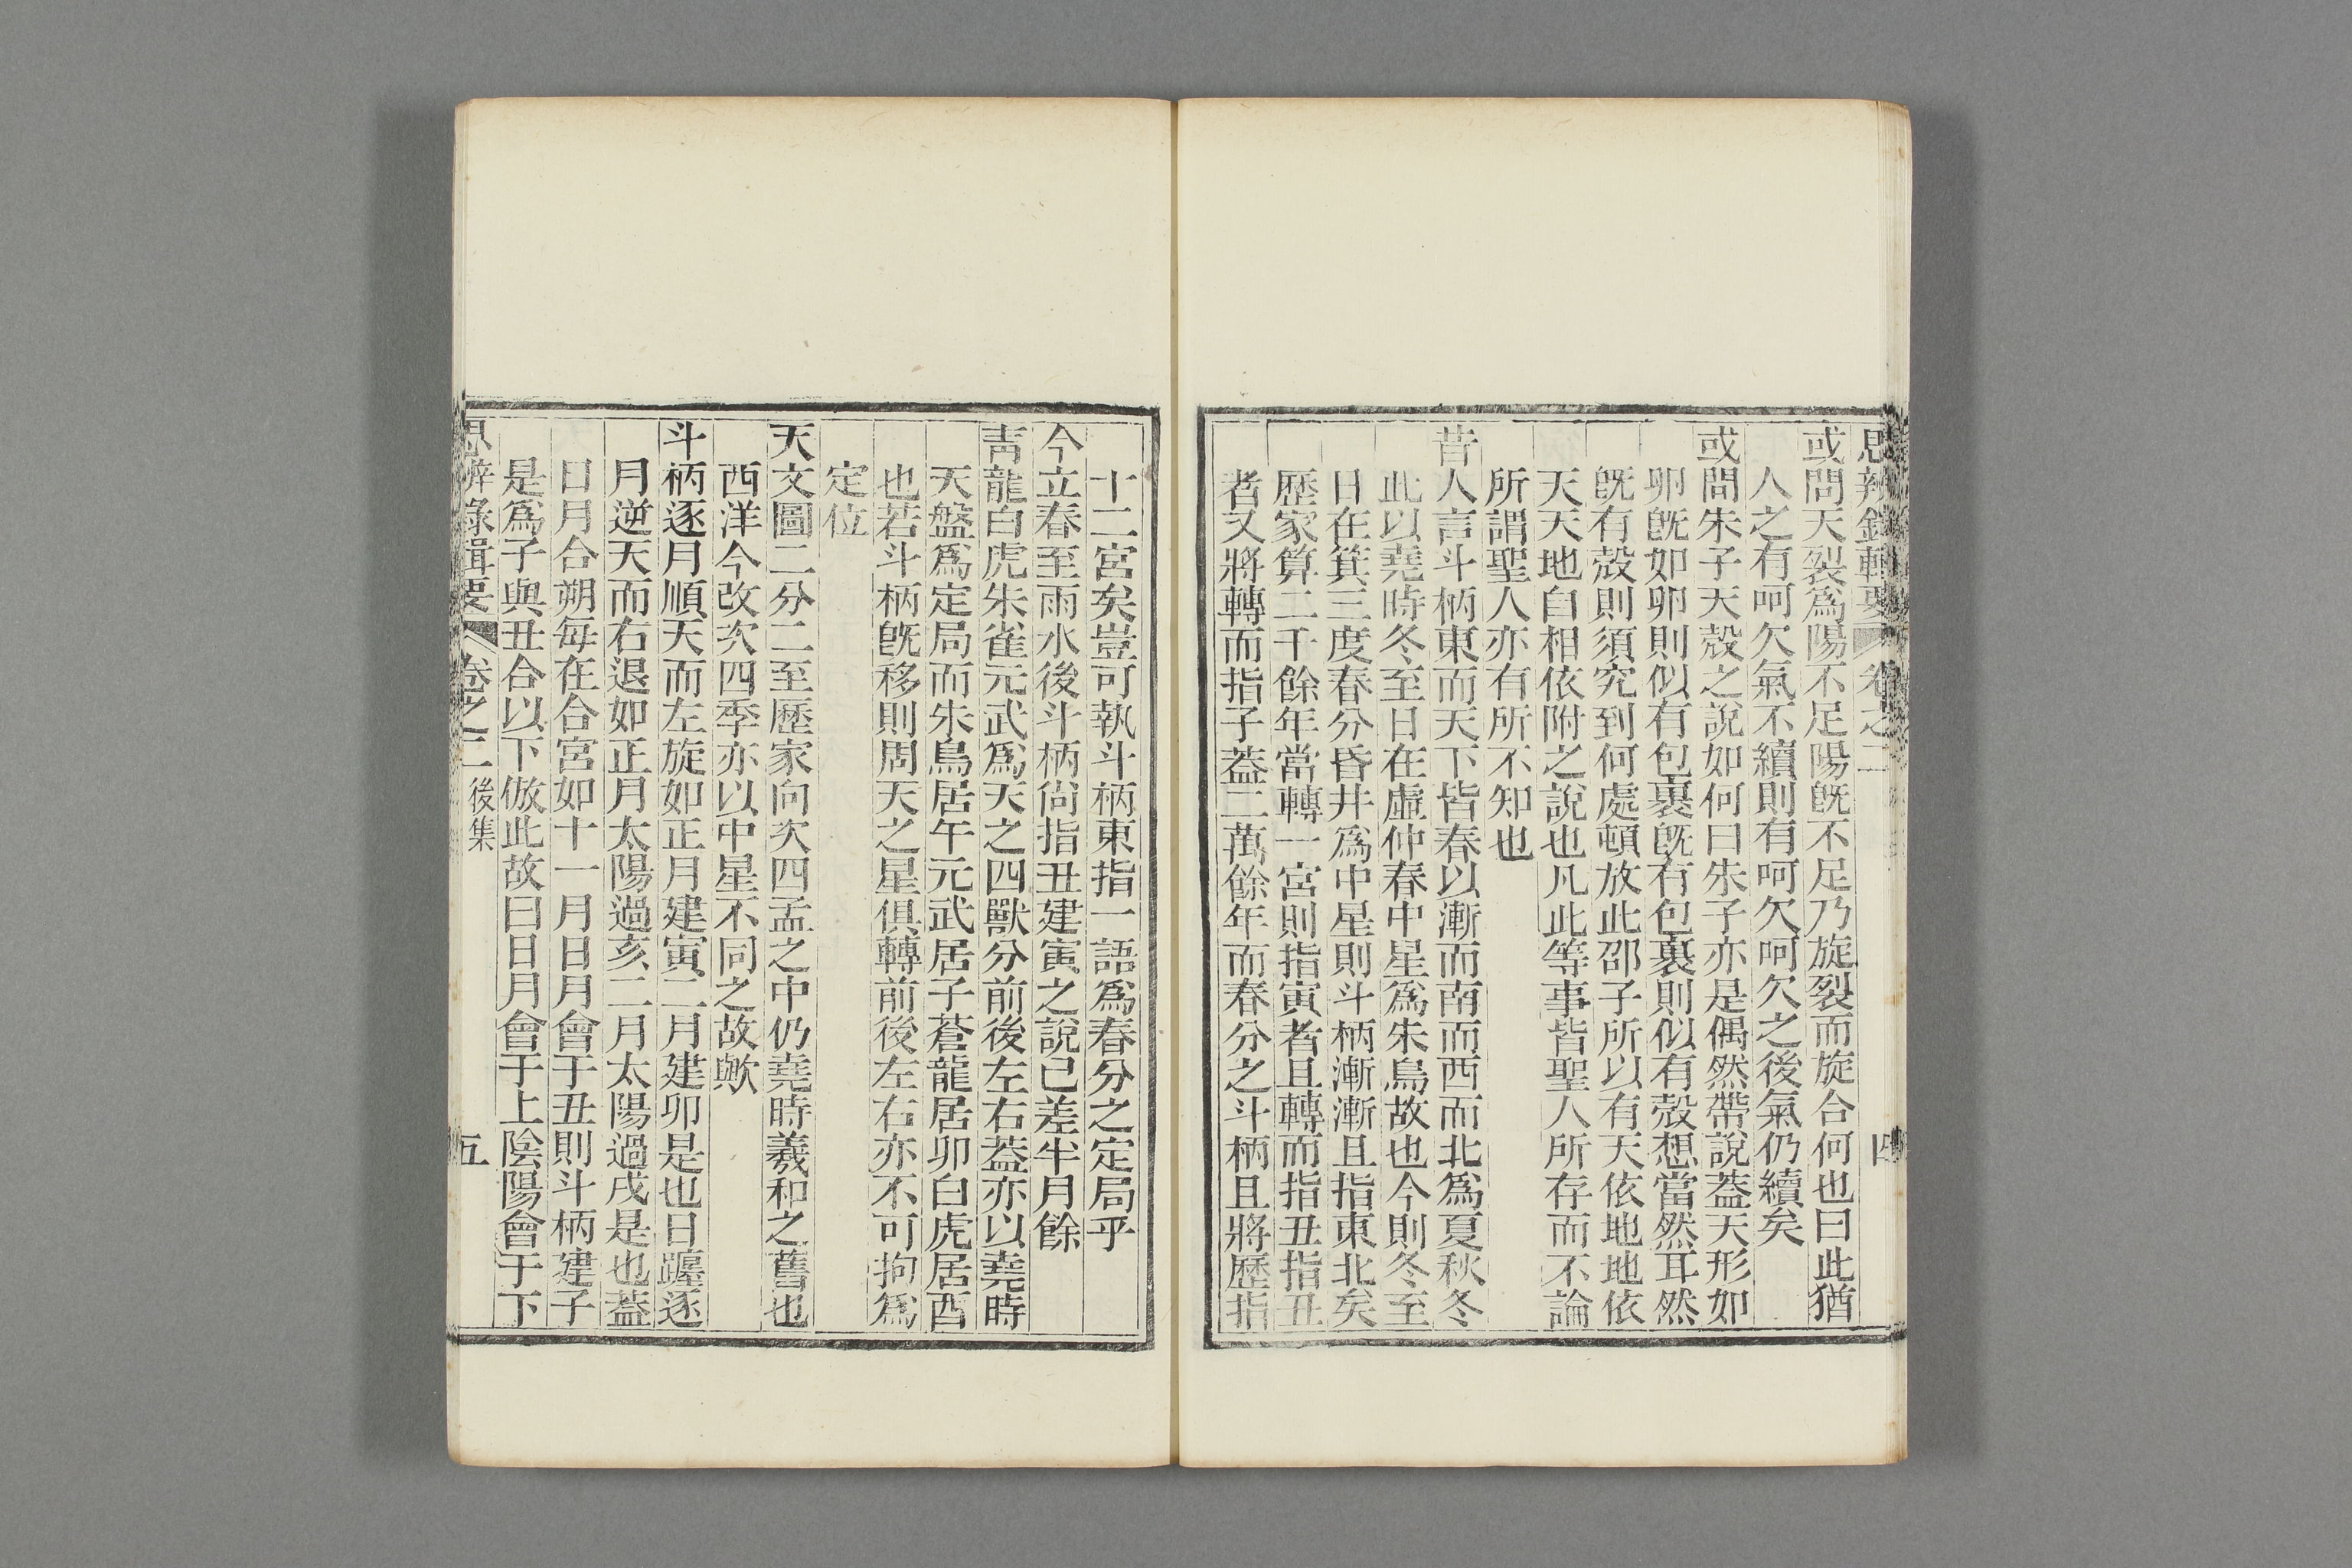 思辨錄輯要 卷之二 四
或問天裂爲陽不足陽旣不足乃旋裂而旋合何也曰此猶
人之有呵欠氣不續則有呵欠呵欠之後氣仍續矣
或問朱子天殼之說如何曰朱子亦是偶然帶說葢天形如
卵旣如卵則似有包裹旣有包裹則似有殼想當然耳然
旣有殼則須究到何處頓放此邵子所以有天依地地依
天天地自相依附之說也凡此等事皆聖人所存而不論
所謂聖人亦有所不知也
昔人言斗柄東而天下皆春以漸而南而西而北爲夏秋冬
此以堯時冬至日在虛仲春中星爲朱鳥故也今則冬至
日在箕三度春分昏井爲中星則斗柄漸漸且指東北矣
歷家算二千餘年當轉一宮則指寅者且轉而指丑指丑
者又將轉而指子葢二萬餘年而春分之斗柄且將歷指
十二宮矣豈可執斗柄東指一語爲春分之定局乎
今立春至雨水後斗柄尙指丑建寅之說已差半月餘
靑龍白虎朱雀元武爲天之四獸分前後左右葢亦以堯時
天盤爲定局而朱鳥居午元武居子蒼龍居卯白虎居酉
也若斗柄旣移則周天之星俱轉前後左右亦不可拘爲
定位
天文圖二分二至歷家向次四孟之中仍堯時羲和之舊也
西洋今改次四季亦以中星不同之故歟
斗柄逐月順天而左旋如正月建寅二月建卯是也日躔逐
月逆天而右退如正月太陽過亥二月太陽過戌是也葢
日月合朔每在合宮如十一月日月會于丑則斗柄建子
是爲子與丑合以下倣此故曰日月會于上陰陽會于下
思辨錄輯要 卷之二 後集 五